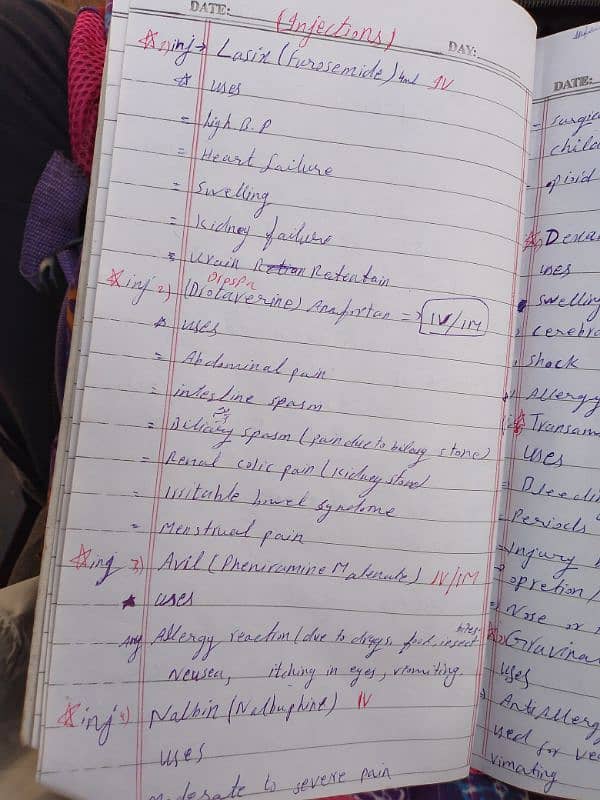 DATE:
(Injections)
DAY:
inj → Lasix (Furosemide) 4ml IV
uses
= high B.P
= Heart failure
= Swelling
= Kidney failure
= Urain Retentain
inj 2) (Drotaverine) Anafortan => IV/IM
uses
= Abdominal pain
= intestine spasm
= Biliary spasm (pain due to bilary stone)
= Renal colic pain (Kidney stone)
= Irritable bowel syndrome
= Menstrual pain
inj 3) Avil (Pheniramine Maleate) IV/IM
uses
Allergy reaction (due to drugs, food, insect bites
Neusea, itching in eyes, vomiting.
inj 4) Nalbin (Nalbuphine) IV
uses
Moderate to severe pain
DATE:
= Surgic
child
= opioid
Dexa
uses
Swelling
Cerebra
Shock
Allergy
Transam
uses
= Bleedi
= Periods
= Injury
opretion /
= Nose or
Gravina
uses
Anti Allergy
used for ve
vimating